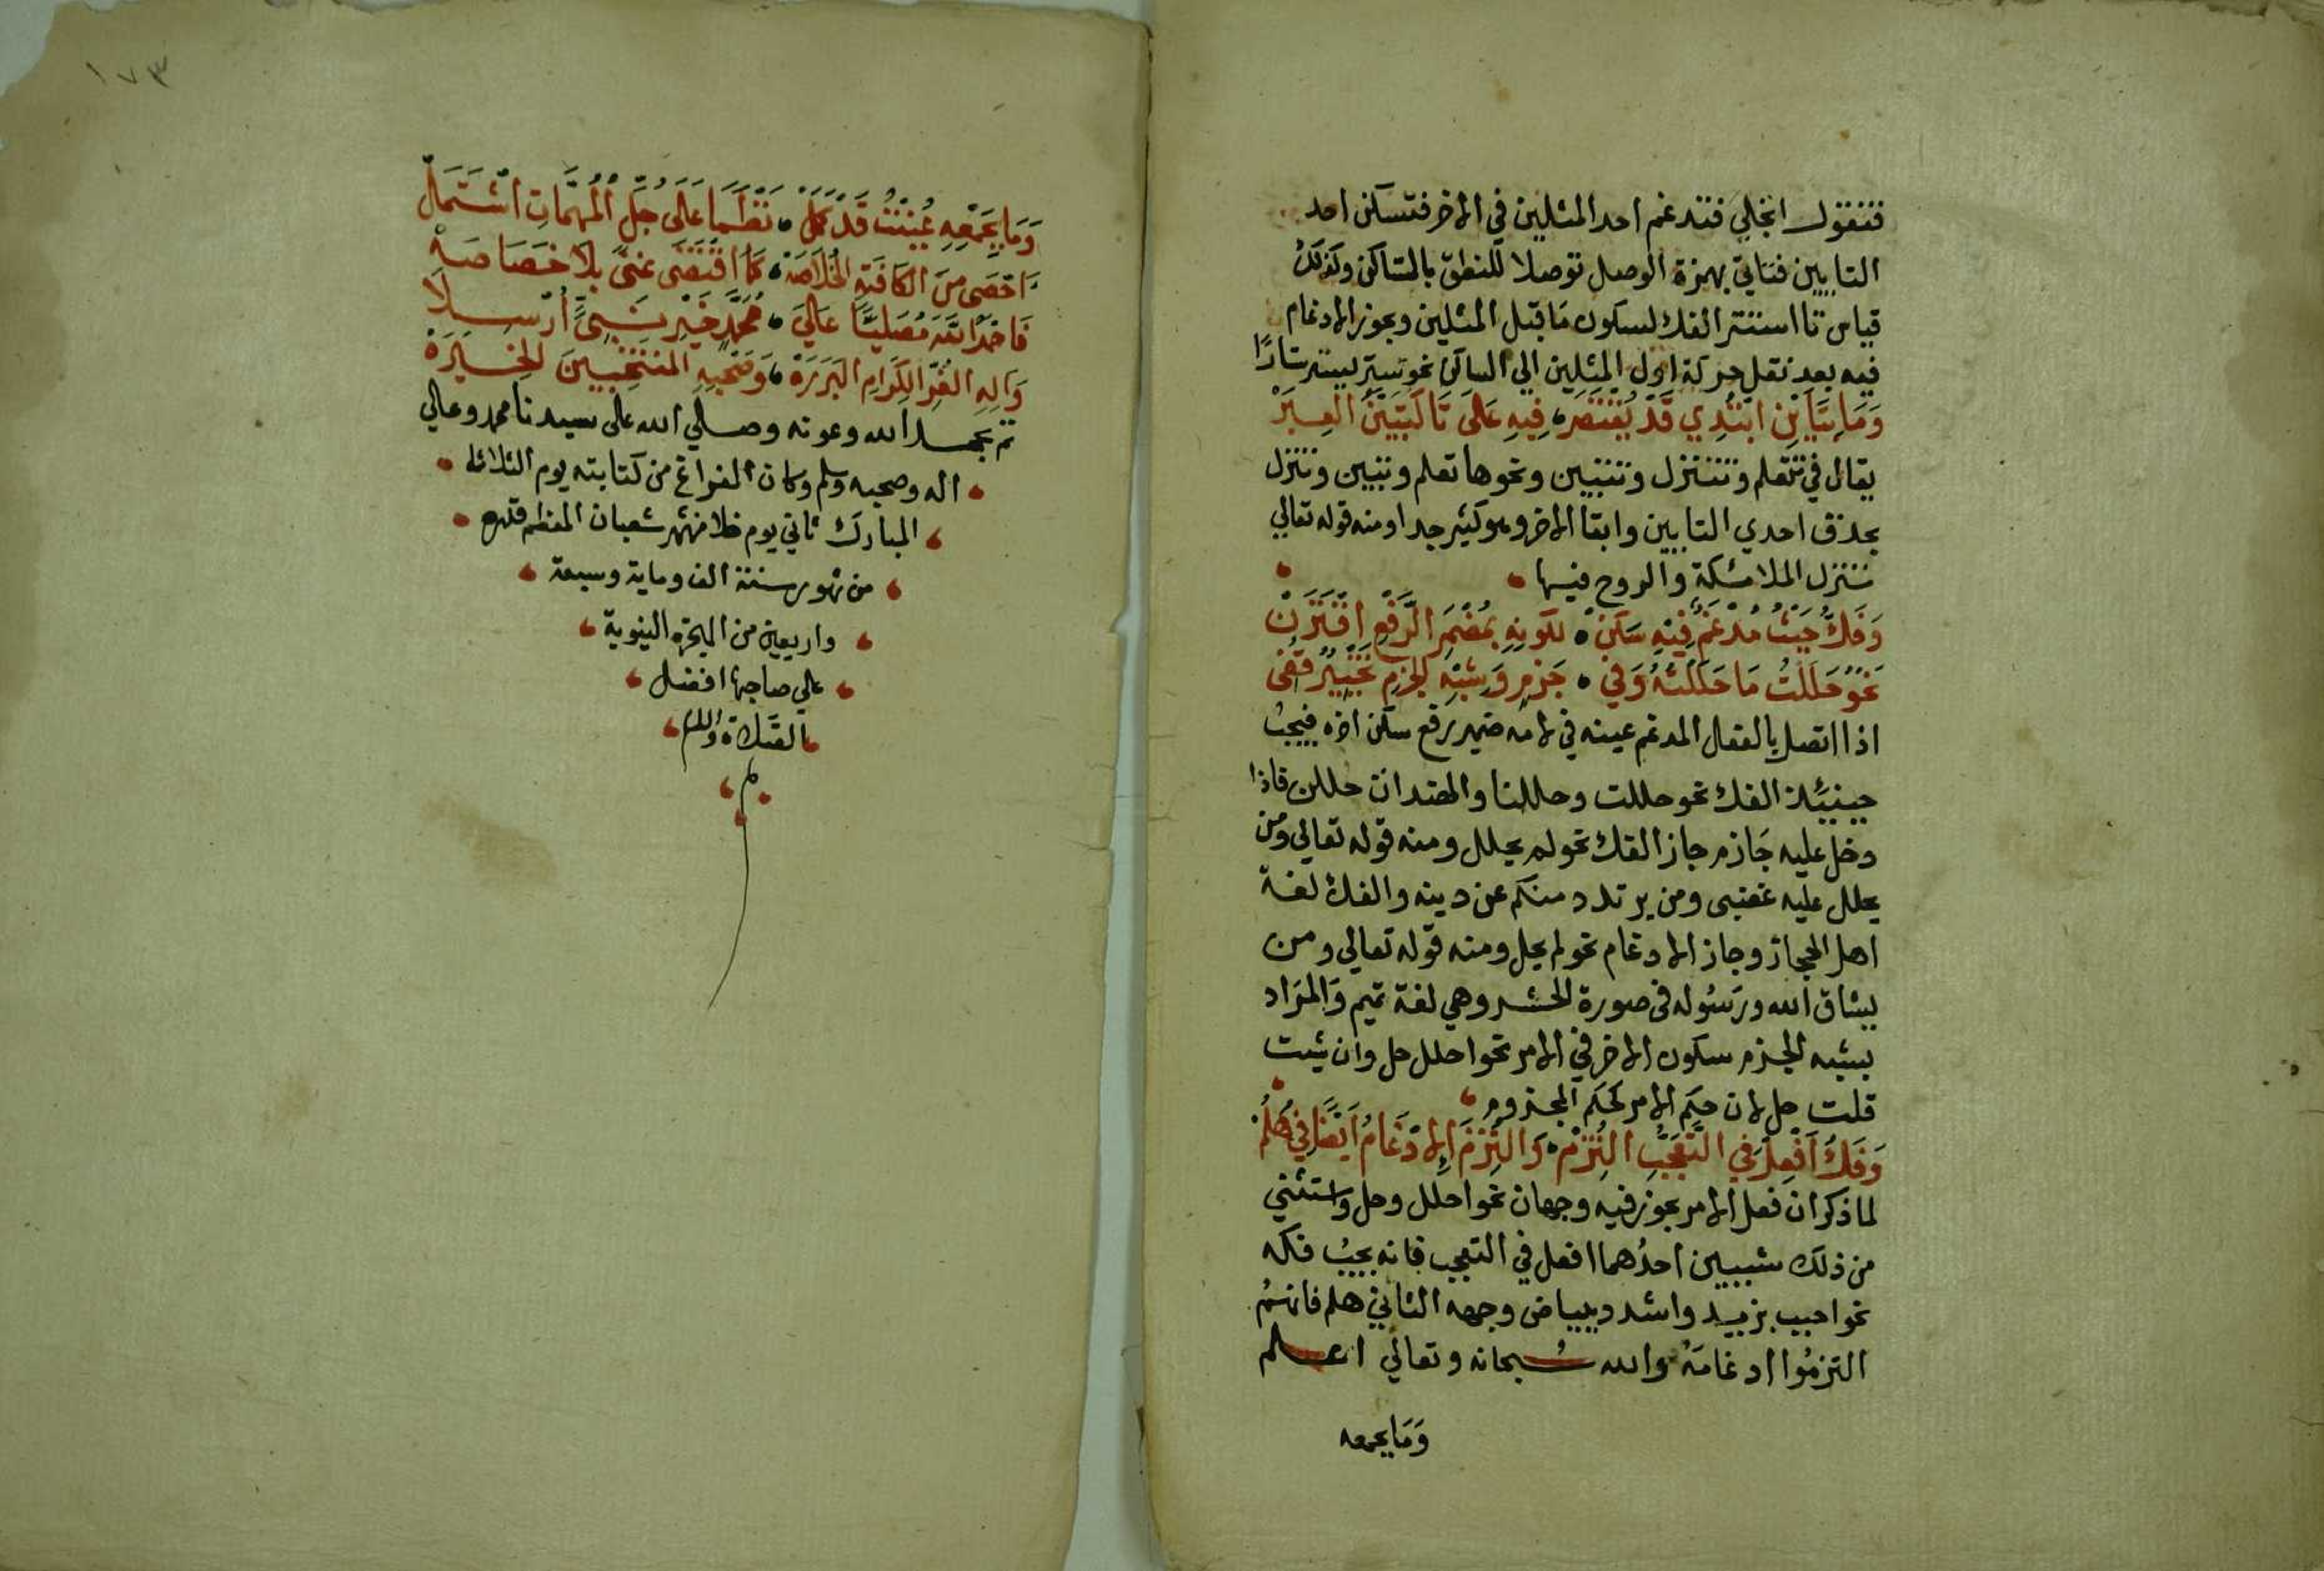 فتقول اتجلي فتدغم احد المثلين في الاخر فتسكن احد
التايين فتاتي بهمزة الوصل توصلا للنطق بالساكن وكذلك
قياس تا استتر الفك لسكون ما قبل المثلين ويجوز الادغام
فيه بعد نقل حركة اول المثلين الي الساكن نحو ستر يستر ستارًا
وَمَا بِتَايَيْنِ ابْتُدِي قَدْ يُقْتَصَرْ فِيهِ عَلَى تَا كَتَبَيَّنُ الْعِبَرْ
يقال في تتعلم وتتنزل وتتبين ونحوها تعلم وتبين وتنزل
بحذف احدي التايين وابقا الاخر وهو كثير جدا ومنه قوله تعالي
تنزل الملائكة والروح فيها
وَفُكَّ حَيْثُ مُدْغَمٌ فِيهِ سَكَنْ لكونِهِ بمُضْمَرِ الرَّفْعِ اقْتَرَنْ
نَحْوُ حَلَلْتُ مَا حَلَلْتُهُ وَفي جَزْمٍ وَشِبْهِ الجَزْمِ تَخْيِيرٌ قُفِي
اذا اتصل بالفعل المدغم عينه في لامه ضمير رفع سكن اخره فيجبُ
حينيئذ الفك نحو حللت وحللنا والهندات حللن فاذا
دخل عليه جَازم جاز الفك نحو لم يحلل ومنه قوله تعالي ومن
يحلل عليه غضبى ومن يرتدد منكم عن دينه والفك لغة
اهل الحجاز وجاز الادغام نحو لم يحل ومنه قوله تعالي ومن
يشاق الله ورَسُوله فى صورة الحشر وهي لغة تميم وَالمرَاد
بشبه الجزم سكون الاخر في الامر نحو احلل حل وان شيت
قلت حل لان حكم الامر كحكم المجزوم
وَفَكُّ أَفْعِلْ في التَّعَجُّبِ الْتُزِمْ وَالْتُزِمَ الإدْغَامُ أَيْضًا في هَلُمْ
لما ذكر ان فعل الامر يجوز فيه وجهان نحو احلل وحل واستثني
من ذلك شييين احدُهما افعل في التعجب فانه يجبُ فكه
نحو احبب بزيد واشدد ببياض وجهه الثاني هلم فانهُم
التزمُوا ادغامَهُ والله سُبحانه وتعالي اعلم
وَمَا بجمعه
١٧٣
وَمَا بِجَمْعِهِ عُنِيتُ قَدْ كَمَلْ نَظْمًا عَلَى جُلِّ الْمُهِمَّاتِ اشْتَمَلْ
احْصَى مِنَ الكَافيَةِ الخُلاَصَهْ كَمَا اقْتَضَى غنىً بِلاَ خَصَاصَهْ
فَاحْمَدُ اللَّهَ مُصَلِّيًا عَلَى مُحَمَّدٍ خَيْرِ نَبِىٍّ أُرْسِلاَ
وَالِهِ الغُرِّ الكِرَامِ البَرَرَهْ وَصَحْبِهِ المُنْتَخَبِينَ الْخِيَرَهْ
تم بحمد الله وعونه وصلي الله على سيدنا محمد وعالي
اله وصحبه وسلم وكان الفراغ من كتابته يوم الثلاثاء
المبارك ثاني يوم خلا من شهر شعبان المعظم قدره
من شهور سنة الف وماية وسبعة
واربعين من الهجرة النبوية
علي صاحبها افضل
الصَّلاة والسلام
م